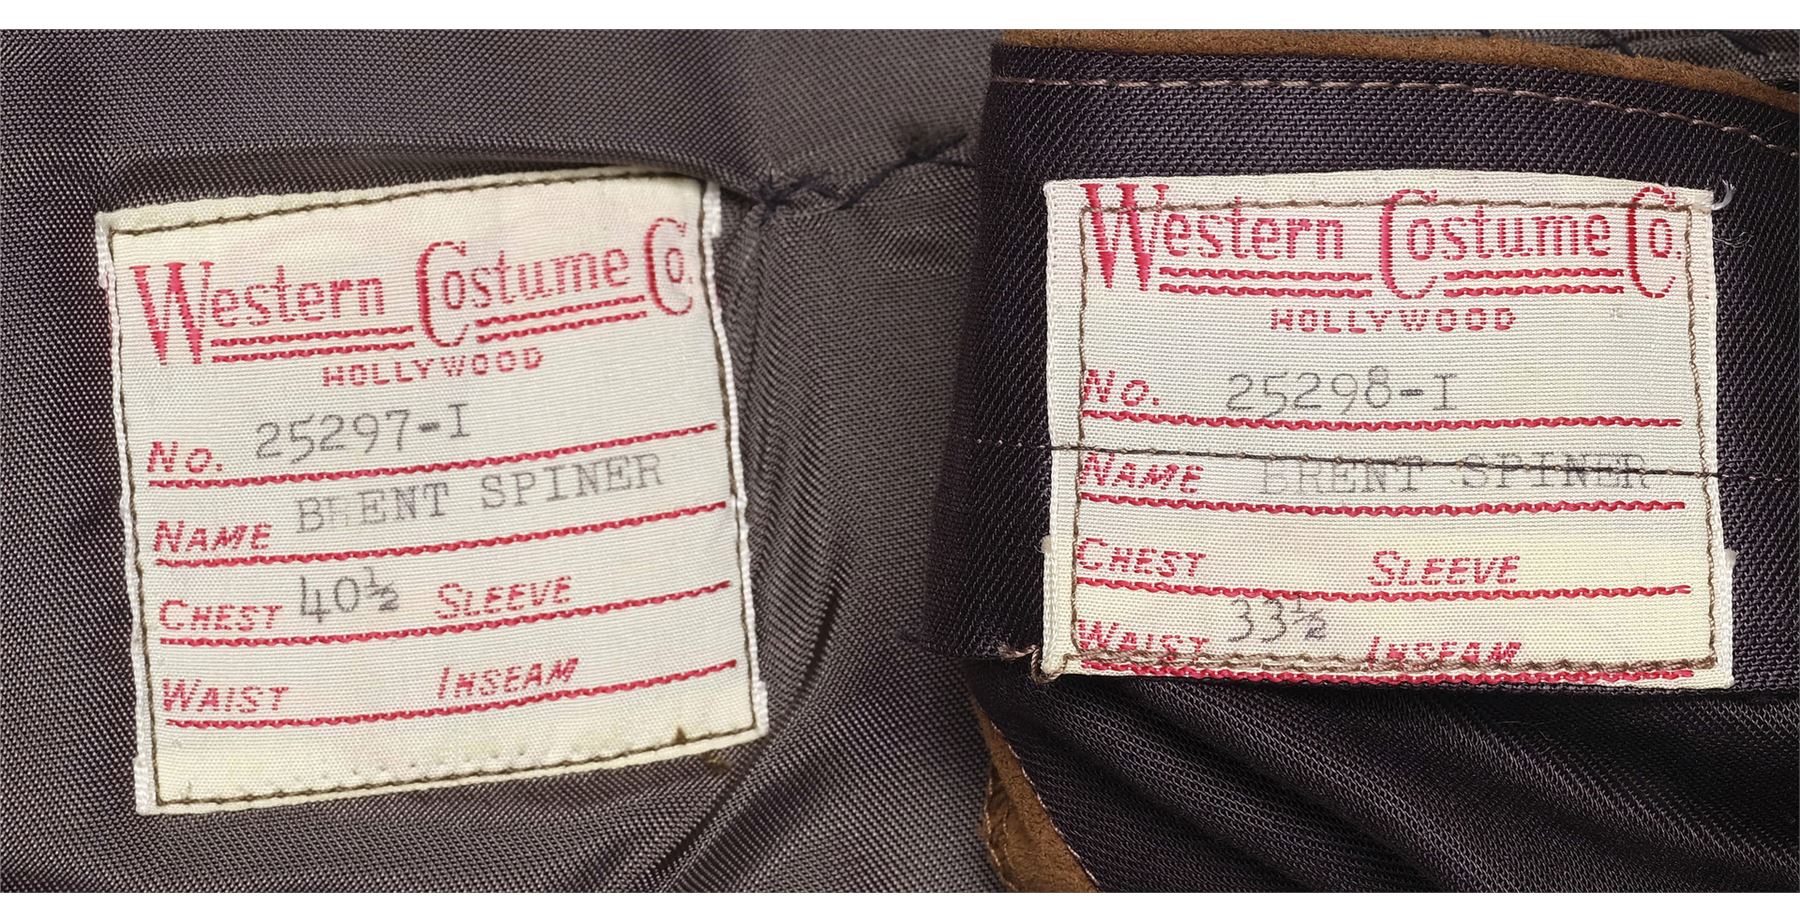 Western Costume Co.
HOLLYWOOD
No. 25297-I
NAME BRENT SPINER
CHEST 40½ SLEEVE
WAIST INSEAM
Western Costume Co.
HOLLYWOOD
No. 25298-I
NAME BRENT SPINER
CHEST SLEEVE
WAIST 33½ INSEAM